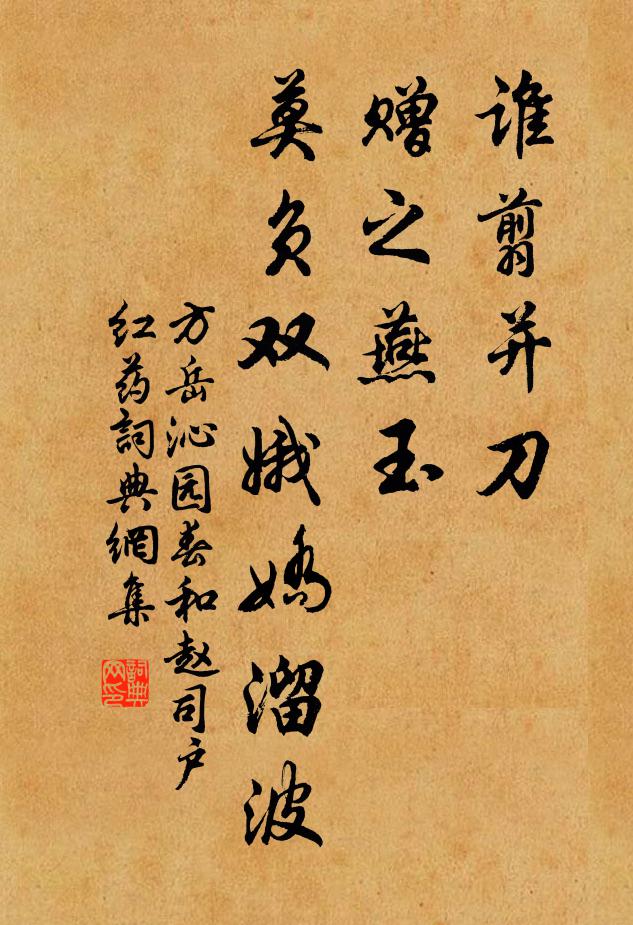 谁翦并刀
赠之燕玉
莫负双娥娇溜波
方岳沁园春和赵司户
红药詞典網集
詞典网印